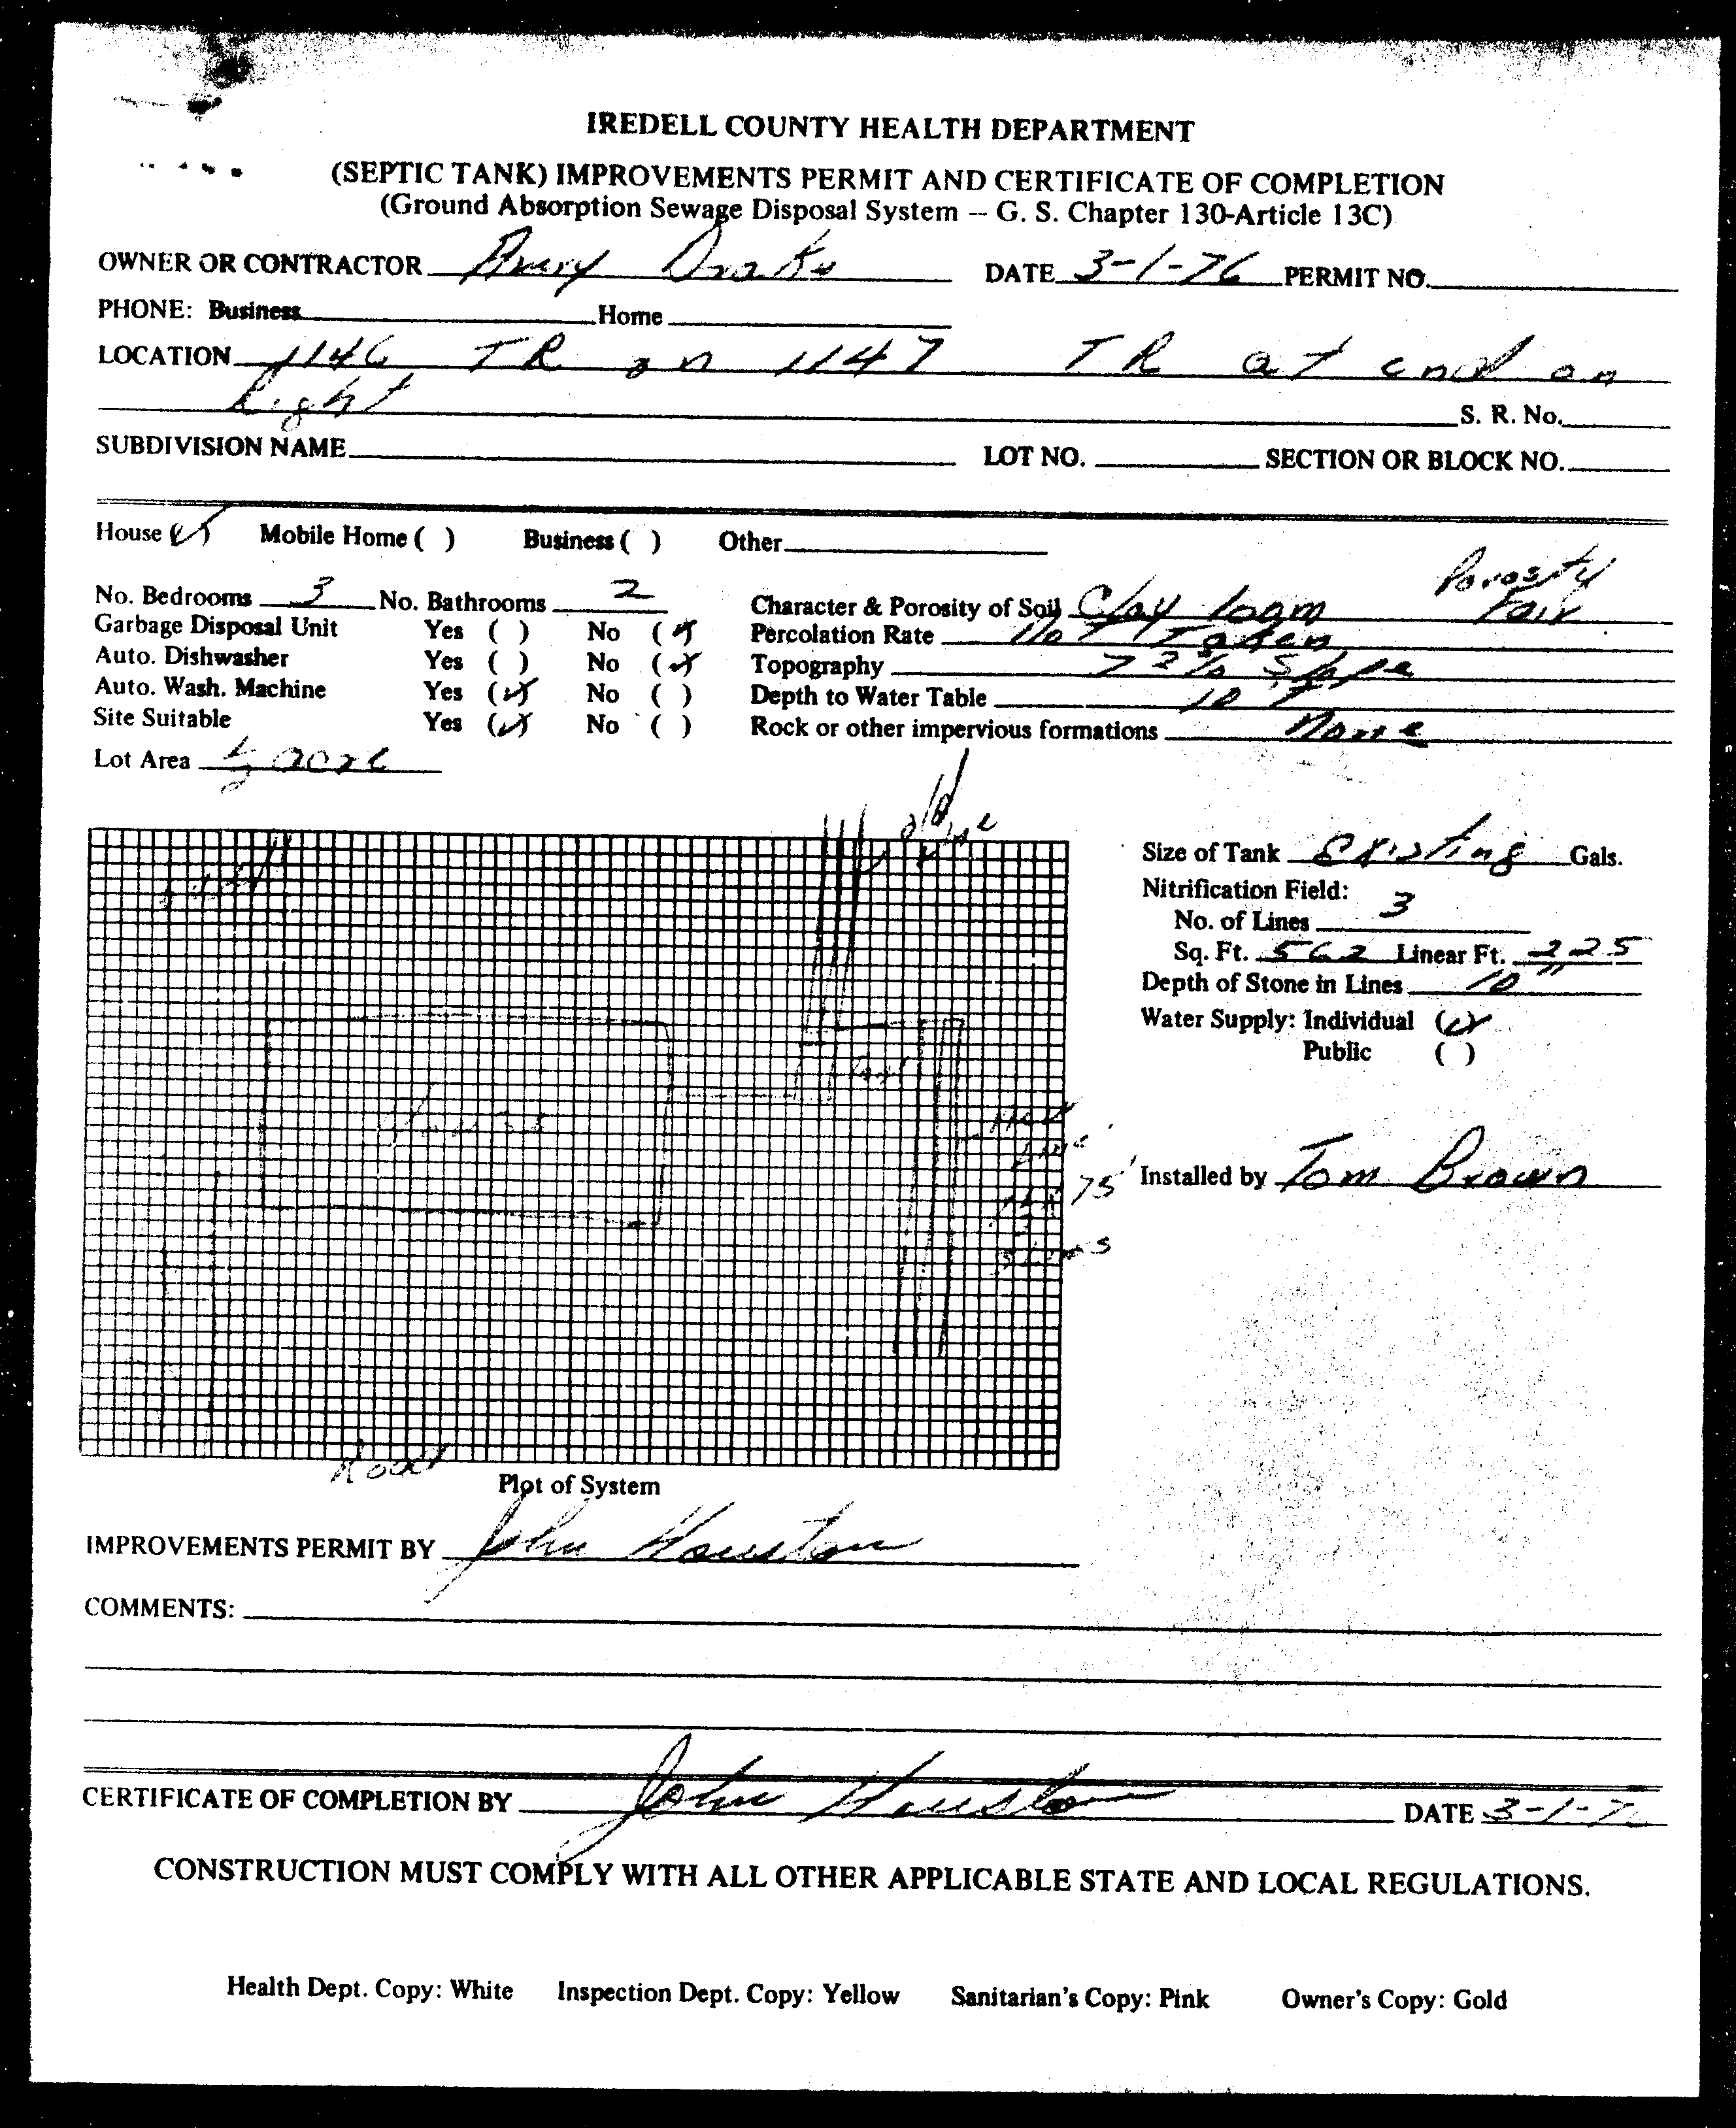 IREDELL COUNTY HEALTH DEPARTMENT
(SEPTIC TANK) IMPROVEMENTS PERMIT AND CERTIFICATE OF COMPLETION
(Ground Absorption Sewage Disposal System – G. S. Chapter 130-Article 13C)
OWNER OR CONTRACTOR Avery Drake DATE 3-1-76 PERMIT NO.
PHONE: Business Home
LOCATION 1146 TR on 1147 TR at end on
Right S. R. No.
SUBDIVISION NAME LOT NO. SECTION OR BLOCK NO.
House (✓) Mobile Home ( ) Business ( ) Other
Porosity
No. Bedrooms 3 No. Bathrooms 2 Character & Porosity of Soil Clay loam Fair
Garbage Disposal Unit Yes ( ) No (✓) Percolation Rate Not Taken
Auto. Dishwasher Yes ( ) No (✓) Topography 72% Slope
Auto. Wash. Machine Yes (✓) No ( ) Depth to Water Table 10
Site Suitable Yes (✓) No ( ) Rock or other impervious formations None
Lot Area acre
old
line
Size of Tank Existing Gals.
Nitrification Field:
No. of Lines 3
Sq. Ft. 562 Linear Ft. 225
Depth of Stone in Lines 10"
Water Supply: Individual (✓)
Public ( )
House
75'
Installed by Tom Brown
Road
Plot of System
IMPROVEMENTS PERMIT BY John Houston
COMMENTS:
CERTIFICATE OF COMPLETION BY John Houston DATE 3-1-76
CONSTRUCTION MUST COMPLY WITH ALL OTHER APPLICABLE STATE AND LOCAL REGULATIONS.
Health Dept. Copy: White Inspection Dept. Copy: Yellow Sanitarian's Copy: Pink Owner's Copy: Gold